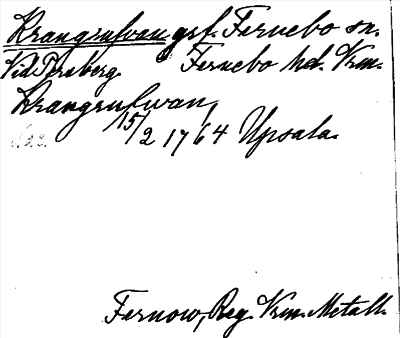 Krangrufwan grf. Fernebo sn.
Vid Persberg. Fernebo hd. Vrm.
Krangrufwan,
15/2 1764 Upsala.
Fernow, Reg. Vrm. Metall.